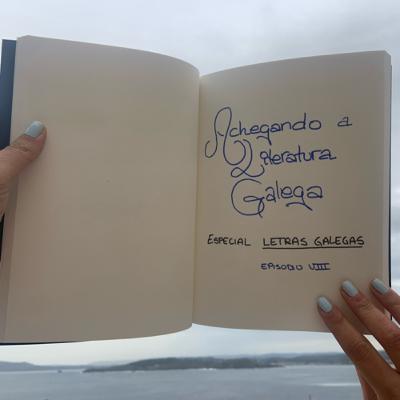 Achegando a
Literatura
Galega
ESPECIAL LETRAS GALEGAS
EPISODIO VIII